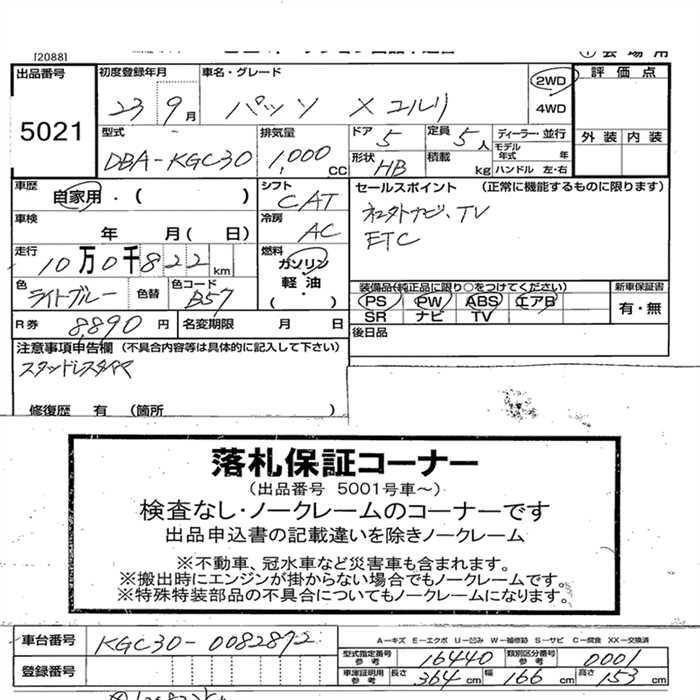 [2088]
① 会場用
出品番号 5021
初度登録年月 23 9月
車名・グレード パッソ X ユルリ
2WD
4WD
評価点
外装 内装
型式 DBA-KGC30
排気量 1,000 CC
ドア 5
定員 5人
形状 HB
積載 kg
ディーラー・並行
モデル年式 年
ハンドル 左・右
車歴 自家用・( )
シフト CAT
セールスポイント (正常に機能するものに限ります)
TV
ETC
車検 年 月( 日)
冷房 AC
走行 10万0千822 km
燃料 ガソリン
軽油・
( )
色 ライトブルー 色替
色コード B57
装備品(純正品に限り○をつけてください)
PS PW ABS エアB
SR ナビ TV
新車保証書
有・無
R券 8,890円
名変期限 月 日
後日品
注意事項申告欄 (不具合内容等は具体的に記入して下さい)
スタッドレスタイヤ
修復歴 有 (箇所 )
落札保証コーナー
(出品番号 5001号車～)
検査なし・ノークレームのコーナーです
出品申込書の記載違いを除きノークレーム
※不動車、冠水車など災害車も含まれます。
※搬出時にエンジンが掛からない場合でもノークレームです。
※特殊特装部品の不具合についてもノークレームになります。
車台番号 KGC30-0082872
登録番号
A-キズ E-エクボ U-凹み W-補修跡 S-サビ C-腐食 XX-交換済
型式指定番号 参考 16440
類別区分番号 参考 0001
車庫証明用 参考 長さ 364 cm 幅 166 cm 高さ 153 cm